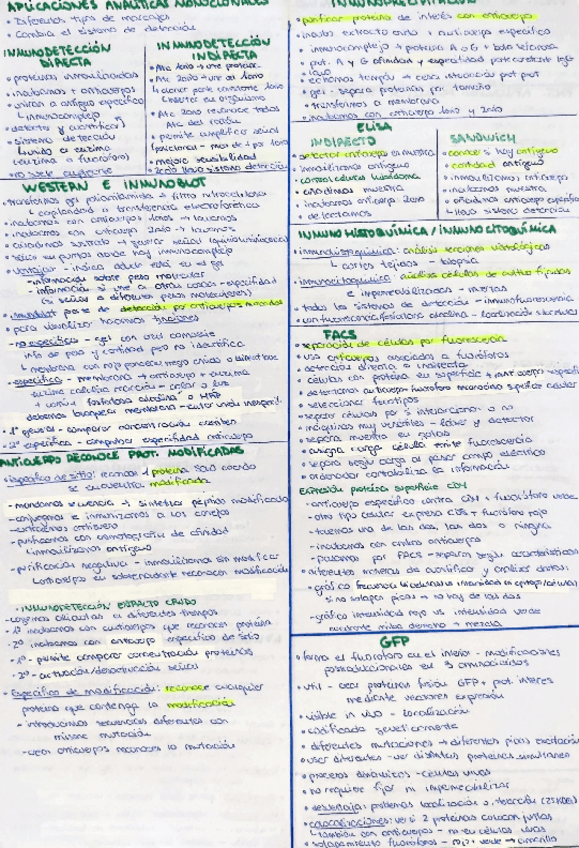 APLICACIONES ANALÍTICAS MONOCLONALES
• Diferentes tipos de marcajes
• Cambia el sistema de detección
INMUNODETECCIÓN DIRECTA
• proteínas inmovilizadas
• incubamos + anticuerpos
• unirán a antígeno específico
↳ inmunocomplejo
• detecta y cuantifica
• sistema detección
↳ unido a enzima
(enzima o fluoróforo)
• no suele
INMUNODETECCIÓN INDIRECTA
• Atc 1ario → une proteína
• Atc 2ario → une al 1ario
• Atc 2ario reconoce todos
Atc del
• permite amplificar señal
• mejora sensibilidad
• 2ario lleva sistema detección
WESTERN E INMUNOBLOT
• transferimos gel poliacrilamida → filtro nitrocelulosa
↳ capilaridad o transferencia electroforética
• incubamos con anticuerpos 1arios → lavamos
• incubamos con anticuerpo 2ario → lavamos
• añadimos sustrato → generar señal
• sólo en puntos donde hay inmunocomplejo
• ventajas - indica
- información sobre peso molecular
- información si une a otras cosas - especificidad
(si señales a diferentes pesos moleculares)
• inmunoblot parte de detección por anticuerpos marcados
• para visualizar hacemos tinciones
- no específica - gel con azul comassie
info de peso y cantidad pero no identifica
↳ membrana con rojo ponceau
- específica - membrana + anticuerpo + enzima
enzima cataliza reacción - color o luz
↳ común fosfatasa alcalina o HRP
debemos bloquear membrana - evitar unión inespecíf.
• 1º general - comparar concentración
• 2º específica - comprueba especificidad anticuerpo
ANTICUERPO RECONOCE PROT. MODIFICADAS
• específico de sitio: reconoce 1 proteína sólo cuando
se encuentra modificada
- mandamos secuencia → sintetiza péptido modificado
- conjugamos e inmunizamos a los conejos
- extraemos antisuero
- purificamos con cromatografía de afinidad
↳ inmovilizamos antígeno
- purificación negativa - inmovilizamos sin modificar
↳ anticuerpo en sobrenadante reconocen modificación
• INMUNODETECCIÓN EXTRACTO CRUDO
- cogemos células a diferentes tiempos
- 1º incubamos con anticuerpos que reconoces proteína
- 2º incubamos con anticuerpo específico de sitio
- 1º - permite comparar concentración proteínas
- 2º - activación/desactivación señal
• Específico de modificación: reconoce cualquier
proteína que contenga la modificación
- introducimos secuencias diferentes con
misma mutación
- crear anticuerpos reconocen la mutación
INMUNOPRECIPITACIÓN
• purificar proteína de interés con anticuerpo
• incubo extracto crudo + anticuerpo específico
• inmunocomplejo + proteína A o G + bola sefarosa
• prot. A y G afinidad y especificidad parte constante
• lavo
• gel - separa proteínas por tamaño
• transferimos a membrana
• incubamos con anticuerpo 1ario y 2ario
ELISA
INDIRECTO
• detectar anticuerpo en muestra
• inmovilizamos antígeno
• control células hibridoma
• añadimos muestra
• incubamos anticuerpo 2ario
• detectamos
SANDWICH
• conocer si hay antígeno
• cantidad antígeno
• inmovilizamos anticuerpo
• incubamos muestra
• añadimos anticuerpo específico
↳ lleva sistema detección
INMUNOHISTOQUÍMICA / INMUNOCITOQUÍMICA
• inmunohistoquímica: análisis secciones histológicas
↳ cortes tejidos - biopsia
• inmunocitoquímica: análisis células de cultivo fijadas
e impermeabilizadas - inertas
• todos los sistemas de detección - inmunofluorescencia
FACS
• separación de células por fluorescencia
• usa anticuerpos asociados a fluoróforos
• detección directa o indirecta
• células con proteína en superficie + anticuerpo específ
• detectamos anticuerpo fluoróforo reacciona superficie celular
• seleccionar fenotipos
• separar células por si interaccionan o no
• máquinas muy versátiles - láser y detector
• separa muestra en gotas
• asigna carga célula emite fluorescencia
• separa según carga al pasar campo eléctrico
• ordenador contabiliza la información
Expresión proteína superficie CD4
- anticuerpo específico contra CD4 + fluoróforo verde
- otro tipo celular expresa CD8 + fluoróforo rojo
- tenemos una de las dos, las dos o ninguna
- incubamos con ambos anticuerpos
- pasamos por FACS - separan según características
• diferentes maneras de cuantificar y analizar datos:
- gráfica frecuencia
- sino solapan picos → no hay de las dos
- gráfica intensidad rojo vs intensidad verde
cuadrante arriba derecha → mezcla
GFP
• forma el fluoróforo en el interior - modificaciones
postraduccionales en 3 aminoácidos
• útil - crear proteínas fusión GFP + prot. interés
mediante vectores expresión
• visible in vivo - localización
• codificada genéticamente
• diferentes mutaciones → diferentes picos excitación
• usar diferentes - ver distintas proteínas simultáneo
• procesos dinámicos - células vivas
• no requiere fijar ni impermeabilizar
• desventaja: problemas localización o función (25KDa)
• colocalizaciones: ver si 2 proteínas colocan juntas
↳ también con anticuerpos - no en células vivas
• solapamiento fluoróforos - rojo + verde → amarillo